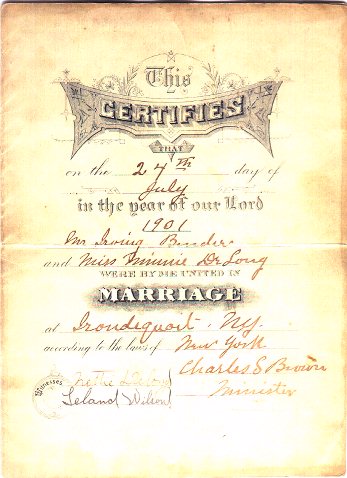 This
CERTIFIES
THAT
on the 24th day of
July
in the year of our Lord
1901
Mr Irving Bender
and Miss Minnie DeLong
WERE BY ME UNITED IN
MARRIAGE
at Irondequoit. N.Y.
according to the laws of New York
Charles E Brown
Minister
Witnesses
Nettie
Leland Wilson